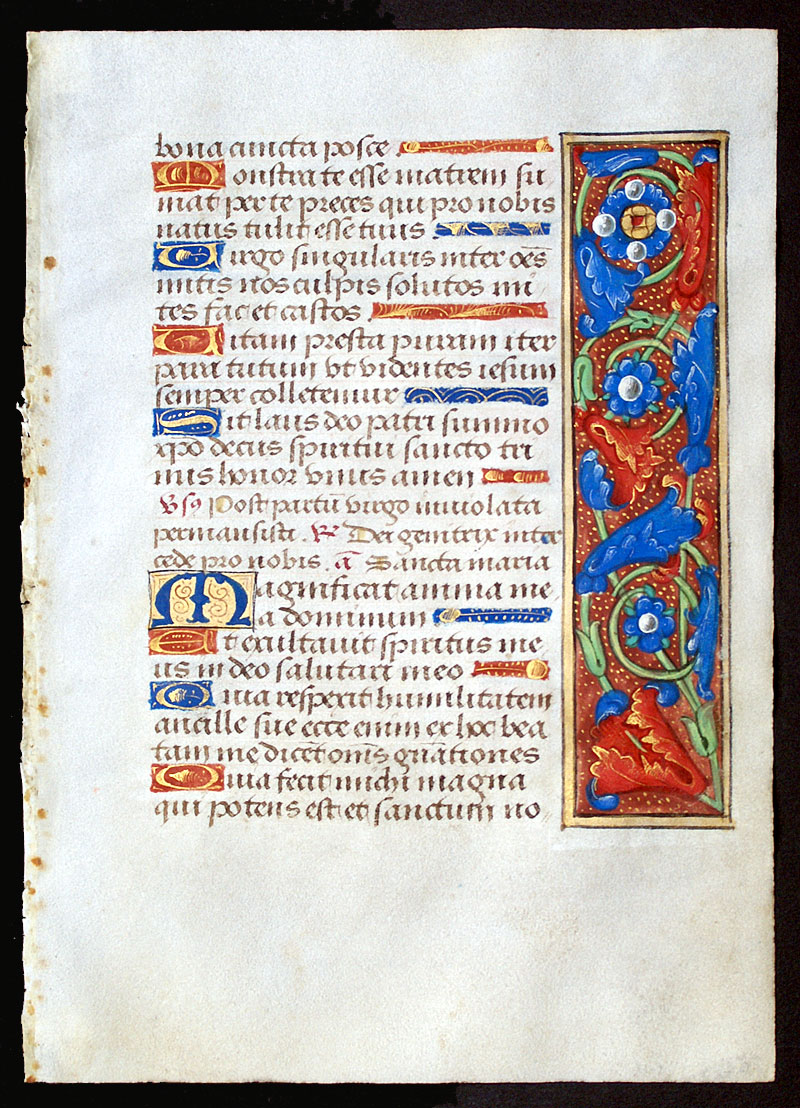 bona cuncta posce
Monstra te esse matrem su
mat per te preces qui pro nobis
natus tulit esse tuus.
Virgo singularis inter oēs
mitis nos culpis solutos mi
tes fac et castos
Vitam presta puram iter
para tutum vt videntes iesum
semper colletemur
Sit laus deo patri summo
xpo decus spiritui sancto tri
nus honor vnus amen
Vsꝰ Post partū virgo inuiolata
permansisti. R̷ Dei genitrix inter
cede pro nobis. añ Sancta maria
Magnificat anima me
a dominum
Et exultauit spiritus me
us in deo salutari meo
Quia respexit humilitatem
ancille sue ecce enim ex hoc bea
tam me dicēt om̄s gn̄ationes
Quia fecit michi magna
qui potens est et sanctum no